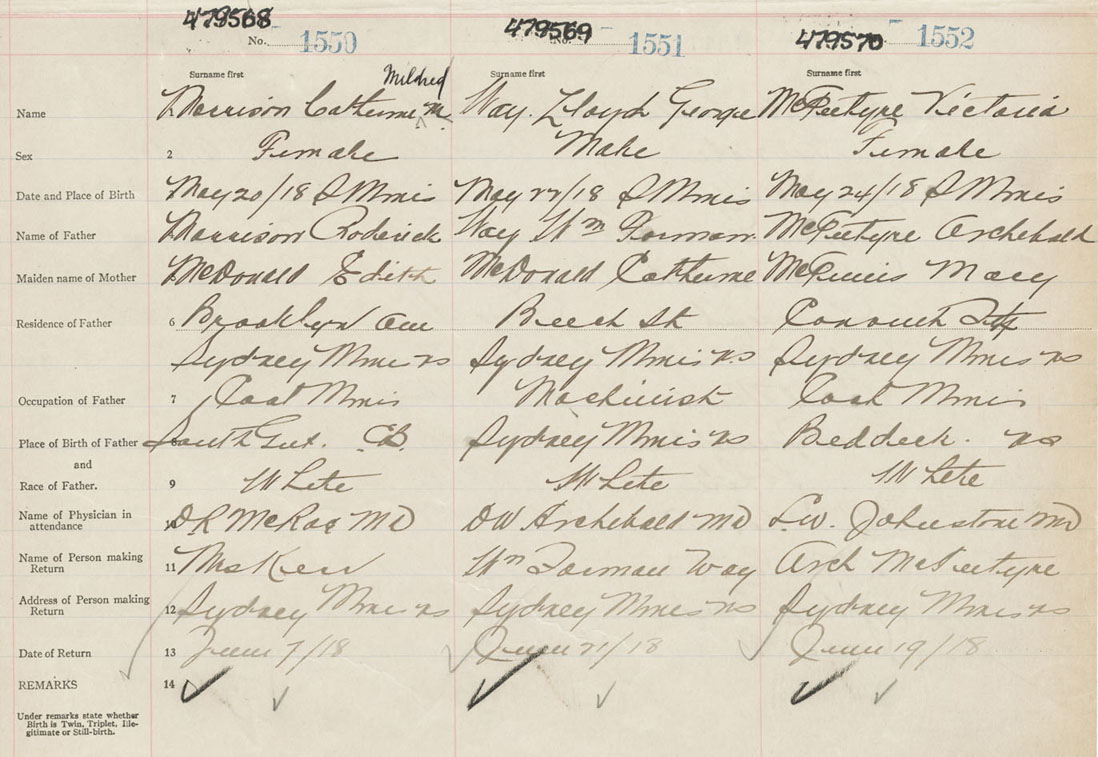 479568 479569 479570
No. 1550 No. 1551 1552
Surname first Surname first Surname first
Mildred
Name 1 Morrison Catherine M. Way. Lloyd George McIntyre Victoria
Sex 2 Female Male Female
Date and Place of Birth May 20/18 S Mines May 27/18 S Mines May 24/18 S Mines
Name of Father Morrison Roderick Way Wm Forman McIntyre Archibald
Maiden name of Mother McDonald Edith McDonald Catherine McInnis Mary
Residence of Father 6 Brooklyn Ave Beech St
Sydney Mines NS Sydney Mines NS. Sydney Mines NS
Occupation of Father 7 Coal Mines Machinist Coal Mines
Place of Birth of Father 8 South Gut. CB. Sydney Mines NS Baddeck. NS
and
Race of Father. 9 White White White
Name of Physician in
attendance 10 D R McRae MD DW Archibald MD LW. Johnstone MD
Name of Person making
Return 11 Mrs Kerr Wm Forman Way Arch McIntyre
Address of Person making
Return 12 Sydney Mines NS Sydney Mines NS Sydney Mines NS
Date of Return 13 June 7/18 June 21/18 June 19/18
REMARKS 14
Under remarks state whether
Birth is Twin, Triplet, Ille-
gitimate or Still-birth.